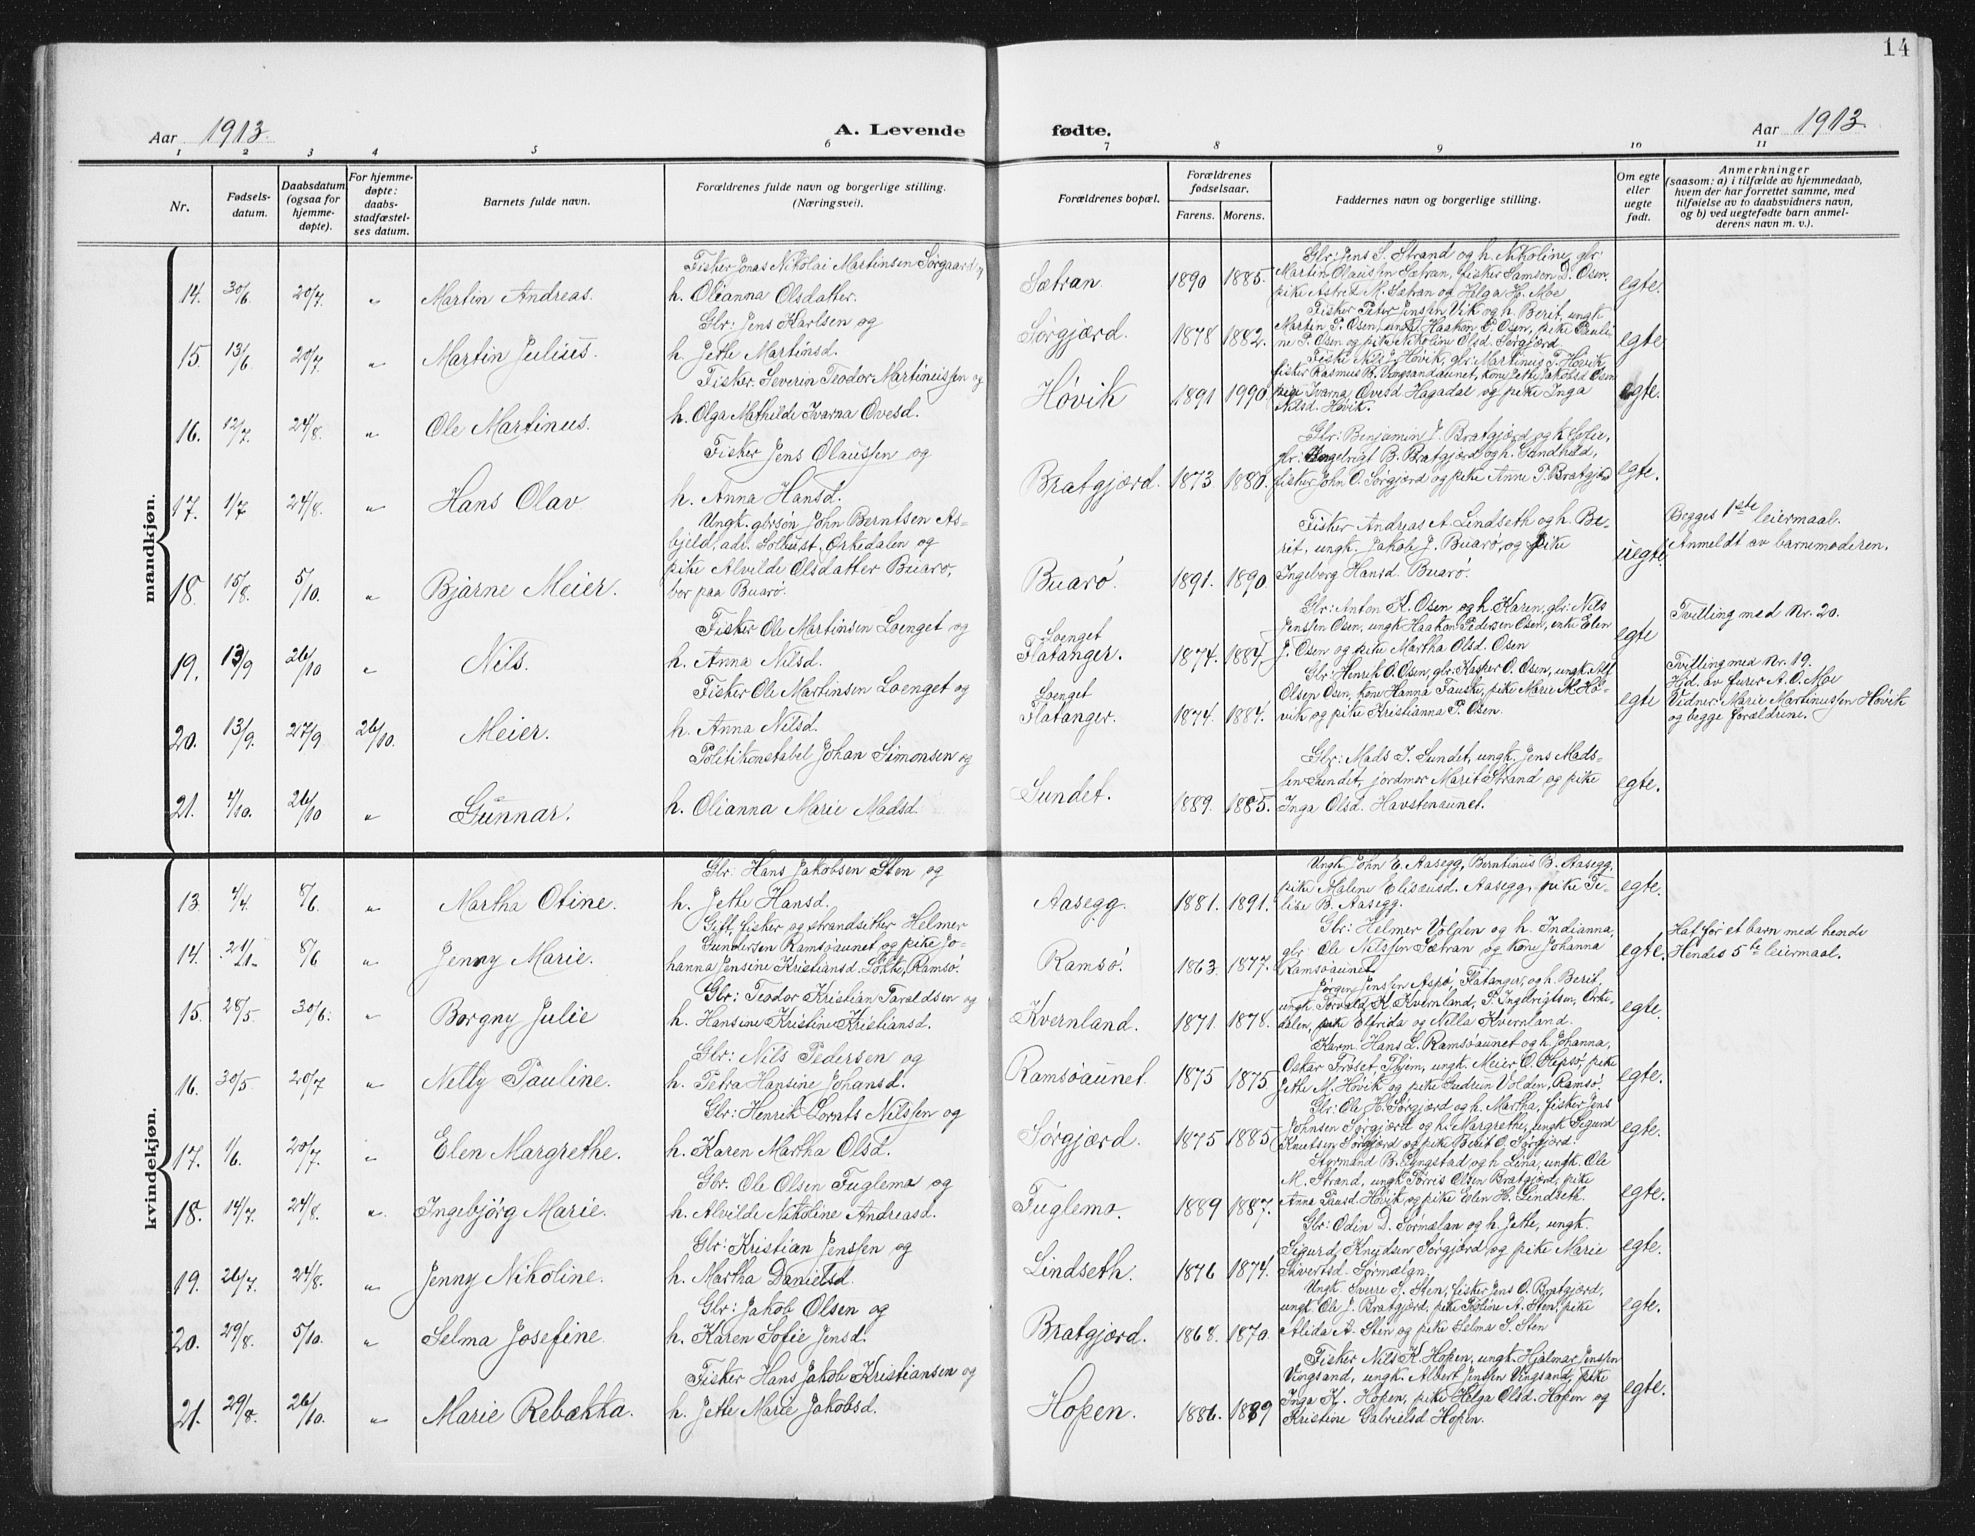 14
Aar 1913. A. Levende fødte. Aar 1913.
1 2 3 4 5 6 7 8 9 10 11
Nr.
Fødsels-
datum.
Daabsdatum
(ogsaa for
hjemme-
døpte).
For hjemme-
døpte:
daabs-
stadfæstel-
ses datum.
Barnets fulde navn.
Forældrenes fulde navn og borgerlige stilling.
(Næringsvei).
Forældrenes bopæl.
Forældrenes
fødselsaar.
Farens. Morens.
Faddernes navn og borgerlige stilling.
Om egte
eller
uegte
født.
Anmerkninger
(saasom: a) i tilfælde av hjemmedaab,
hvem der har forrettet samme, med
tilføielse av to daabsvidners navn,
og b) ved uegtefødte barn anmel-
derens navn m. v.).
mandkjøn.
14. 30/6 20/7 " Martin Andreas.
Fisker Jonas Nikolai Martinsen Sørgaard og
h. Olianna Olsdatter.
Sætran. 1890 1885.
Gbr: Jens S. Strand og h. Nikoline, gbr:
Martin Olaussen Sætran, fisker Samson D. Osen,
pike Astrid M. Sætran og Helga H. Moe
egte.
15. 13/6 20/7 " Martin Julius.
Gbr: Jens Karlsen og
h. Jette Martinsd.
Sørgjærd. 1878 1882.
Fisker Peter Jensen Vik og h. Berit, ungk
Martin P. Osen, ungk Haakon P. Osen, pike Pauli-
ne P. Osen og pike Nikolin Olsd. Sørgjærd
egte.
16. 12/7 24/8. " Ole Martinus.
Fisker Severin Teodor Martinussen og
h. Olga Mathilde Ivarna Ovesd.
Høvik 1891 1990
Fisker Nils J. Høvik, gbr: Martinus P. Høvik
fisker Rasmus B. Vingsandaunet, kone Jette Jakobsd Osen
pige Ivarna Ovesd Hagadal og pike Inga
Nilsd. Høvik.
egte.
17. 1/7 24/8. " Hans Olav
Fisker Jens Olaussen og
h. Anna Hansd.
Bratgjærd. 1873 1880.
Gbr: Benjamin J. Bratgjærd og h. Sofie,
gbr: Ingebrigt B. Bratgjærd og h. Sandhild,
fisker John O. Sørgjærd og pike Anne P. Bratgjærd
egte.
18. 15/8. 5/10. " Bjarne Meier.
Ungk. gbrsøn John Berntsen As-
bjeld, adr. Solbust, Orkedalen og
pike Alvilde Olsdatter Buarø,
bor paa Buarø.
Buarø. 1891. 1890
Fisker Andreas A. Lindseth og h. Be-
rit, ungk. Jakob J. Buarø, og pike
Ingeborg Hansd. Buarø.
uegte.
Begges 1ste leiermaal.
Anmeldt av barnemoderen.
19. 13/9 26/10 " Nils.
Fisker Ole Martinsen Loenget og
h. Anna Nilsd.
Loenget
Flatanger. 1874. 1884.
Gbr: Anton K. Osen og h. Karen, gbr: Nils
Jenssen Osen, ungk Haakon Pedersen Osen, enke Elen
J. Osen og pike Martha Olsd. Osen
egte
Tvilling med Nr. 20.
20. 13/9. 27/9 26/10. Meier.
Fisker Ole Martinsen Loenget og
h. Anna Nilsd.
Loenget
Flatanger. 1874. 1884.
Gbr: Henrik O. Osen, gbr: Kasper O. Osen, ungk. Alf
Olsen Osen, kone Hanna Fauske, pike Marie M. Hø-
vik og pike Kristianna P. Osen.
egte
Tvilling med Nr. 19.
Hjd. av furer A. O. Moe
Vidner: Marie Martinussen Høvik
og begge forældrene.
21. 4/10. 26/10 " Gunnar.
Politikonstabel Johan Simonsen og
h. Olianna Marie Madsd.
Sundet. 1889. 1885.
Gbr: Mads J. Sundet, ungk. Jens Mads-
sen Sundet, jordmor Marit Strand og pike
Inga Olsd. Havstenaunet.
egte.
kvindekjøn.
13. 4/4. 8/6. " Martha Otine.
Gbr: Hans Jakobsen Sten og
h. Jette Hansd.
Aasegg. 1881. 1891.
Ungk John E. Aasegg, Berntinus B. Aasegg,
pike Malene Eliseusd. Aasegg, pike Te-
lise B. Aasegg.
egte.
14. 8/6 " Jenny Marie.
Gift fisker og strandsitter Helmer
Gundersen Ramsøaunet og pike Jo-
hanna Jensine Kristiansd. Løkke, Ramsø.
Ramsø. 1863. 1877.
Gbr: Helmer Volden og h. Indianna,
gbr: Ole Nilssen Sætran og kone Johanna
Ramsøaunet.
egte.
Hat før et barn med hende
Hendes 5te leiermaal.
15. 28/5 30/6. " Borgny Julie
Gbr: Teodor Kristian Taraldsen og
h. Hansine Kristine Kristiansd.
Kvernland. 1871. 1878.
Jørgen Jenssen Aspø, Flatanger, og h. Berit,
ungk Torvald K. Kvernland, P. Ingebrigtsen, Orke-
dalen, pike Elfrida og Nella Kvernland.
egte.
16. 30/5. 20/7 " Nelly Pauline.
Gbr: Nils Pedersen og
h. Petra Hansine Johansd.
Ramsøaunet 1875 1875
Karm. Hans L. Ramsøaunet og h. Johanna,
Oskar Frøset, Thjem, ungk. Meier O. Hepsø, pike
Jette M. Høvik og pike Gudrun Volden, Ramsø.
egte.
17. 1/6. 20/7. " Elen Margrethe.
Gbr: Henrik Lornts Nilssen og
h. Karen Martha Olsd.
Sørgjærd. 1875 1885
Gbr: Ole H. Sørgjærd og h. Martha, fisker Jens
Johnsen Sørgjærd og h. Margrethe, ungk Sigurd
Knutsen Sørgjærd og pike Berit O. Sørgjærd.
egte.
18. 14/7 24/8. " Ingebjørg Marie.
Gbr. Ole Olsen Fuglemo og
h. Alvilde Nikoline Andreasd.
Fuglemo. 1889 1887.
Styrmand B. Lyngstad og h. Lina, ungk. Ole
M. Strand, ungk Tørris Olsen Bratgjærd, pike
Anna Pausd. Høvik og pike Elen H. Lindseth.
egte.
19. 26/7 24/8. " Jenny Nikoline.
Gbr: Kristian Jenssen og
h. Martha Danielsd.
Lindseth. 1876 1874.
Gbr: Odin D. Sørmælan og h. Jette, ungk.
Sigurd Knudsen Sørgjærd og pike Marie
Sivertsd. Sørmelan.
egte.
20. 29/8. 5/10. " Selma Josefine.
Gbr: Jakob Olsen og
h. Karen Sofie Jensd.
Bratgjærd. 1868. 1870.
Ungk. Sverre S. Sten, fisker Jens O. Bratgjærd,
ungk. Ole J. Bratgjærd, pike Poline A. Sten, pike
Alida A. Sten og pike Selma S. Sten
egte.
21. 29/8. 26/10. " Marie Rebækka.
Fisker Hans Jakob Kristiansen og
h. Jette Marie Jakobsd.
Hopen. 1886. 1889
Fisker Nils K. Hopen, ungk. Hjalmar Jenssen
Vingsand, ungk. Albert Jenssen Vingsand, pike
Inga K. Hopen, pike Helga Olsd. Hopen og
Kristine Gabrielsd Hopen.
egte.